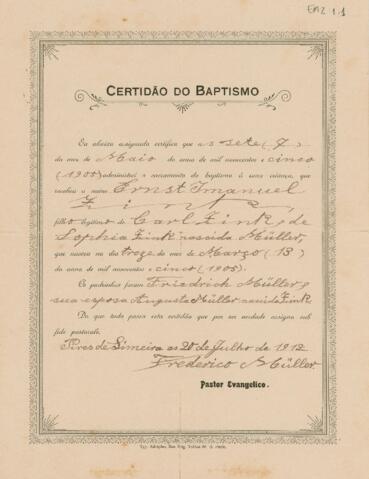 EAZ 1.1
CERTIDÃO DO BAPTISMO
Eu abaixo assignado certifico que aos sete (7)
do mez de Maio do anno de mil novecentos e cinco
(1905) administrei o sacramento do baptismo á uma criança, que
recebeu o nome Ernst Imanuel
Zink,
filho legitimo de Carl Zink e de
Sophia Zink nascida Müller,
que nasceu no dia treze do mez de Março (13)
do anno de mil novecentos e cinco (1905).
Os padrinhos foram Friedrich Müller e
sua esposa Augusta Müller nascida Zink
Do que tudo passei esta certidão que por ser verdade assigno sub
fide pastorali.
Pires de Limeira aos 20 de Julho de 1912
Frederico Müller.
Pastor Evangelico.